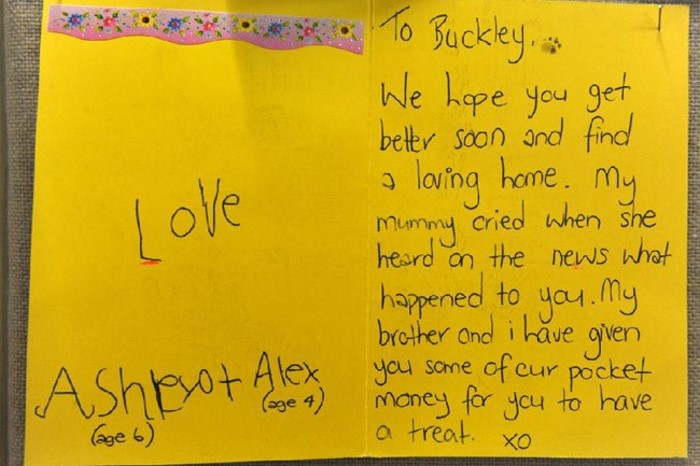 Love
Ashley + Alex
(age 6) (age 4)
To Buckley.
We hope you get
better soon and find
a loving home. My
mummy cried when she
heard on the news what
happened to you. My
brother and i have given
you some of our pocket
money for you to have
a treat. xo